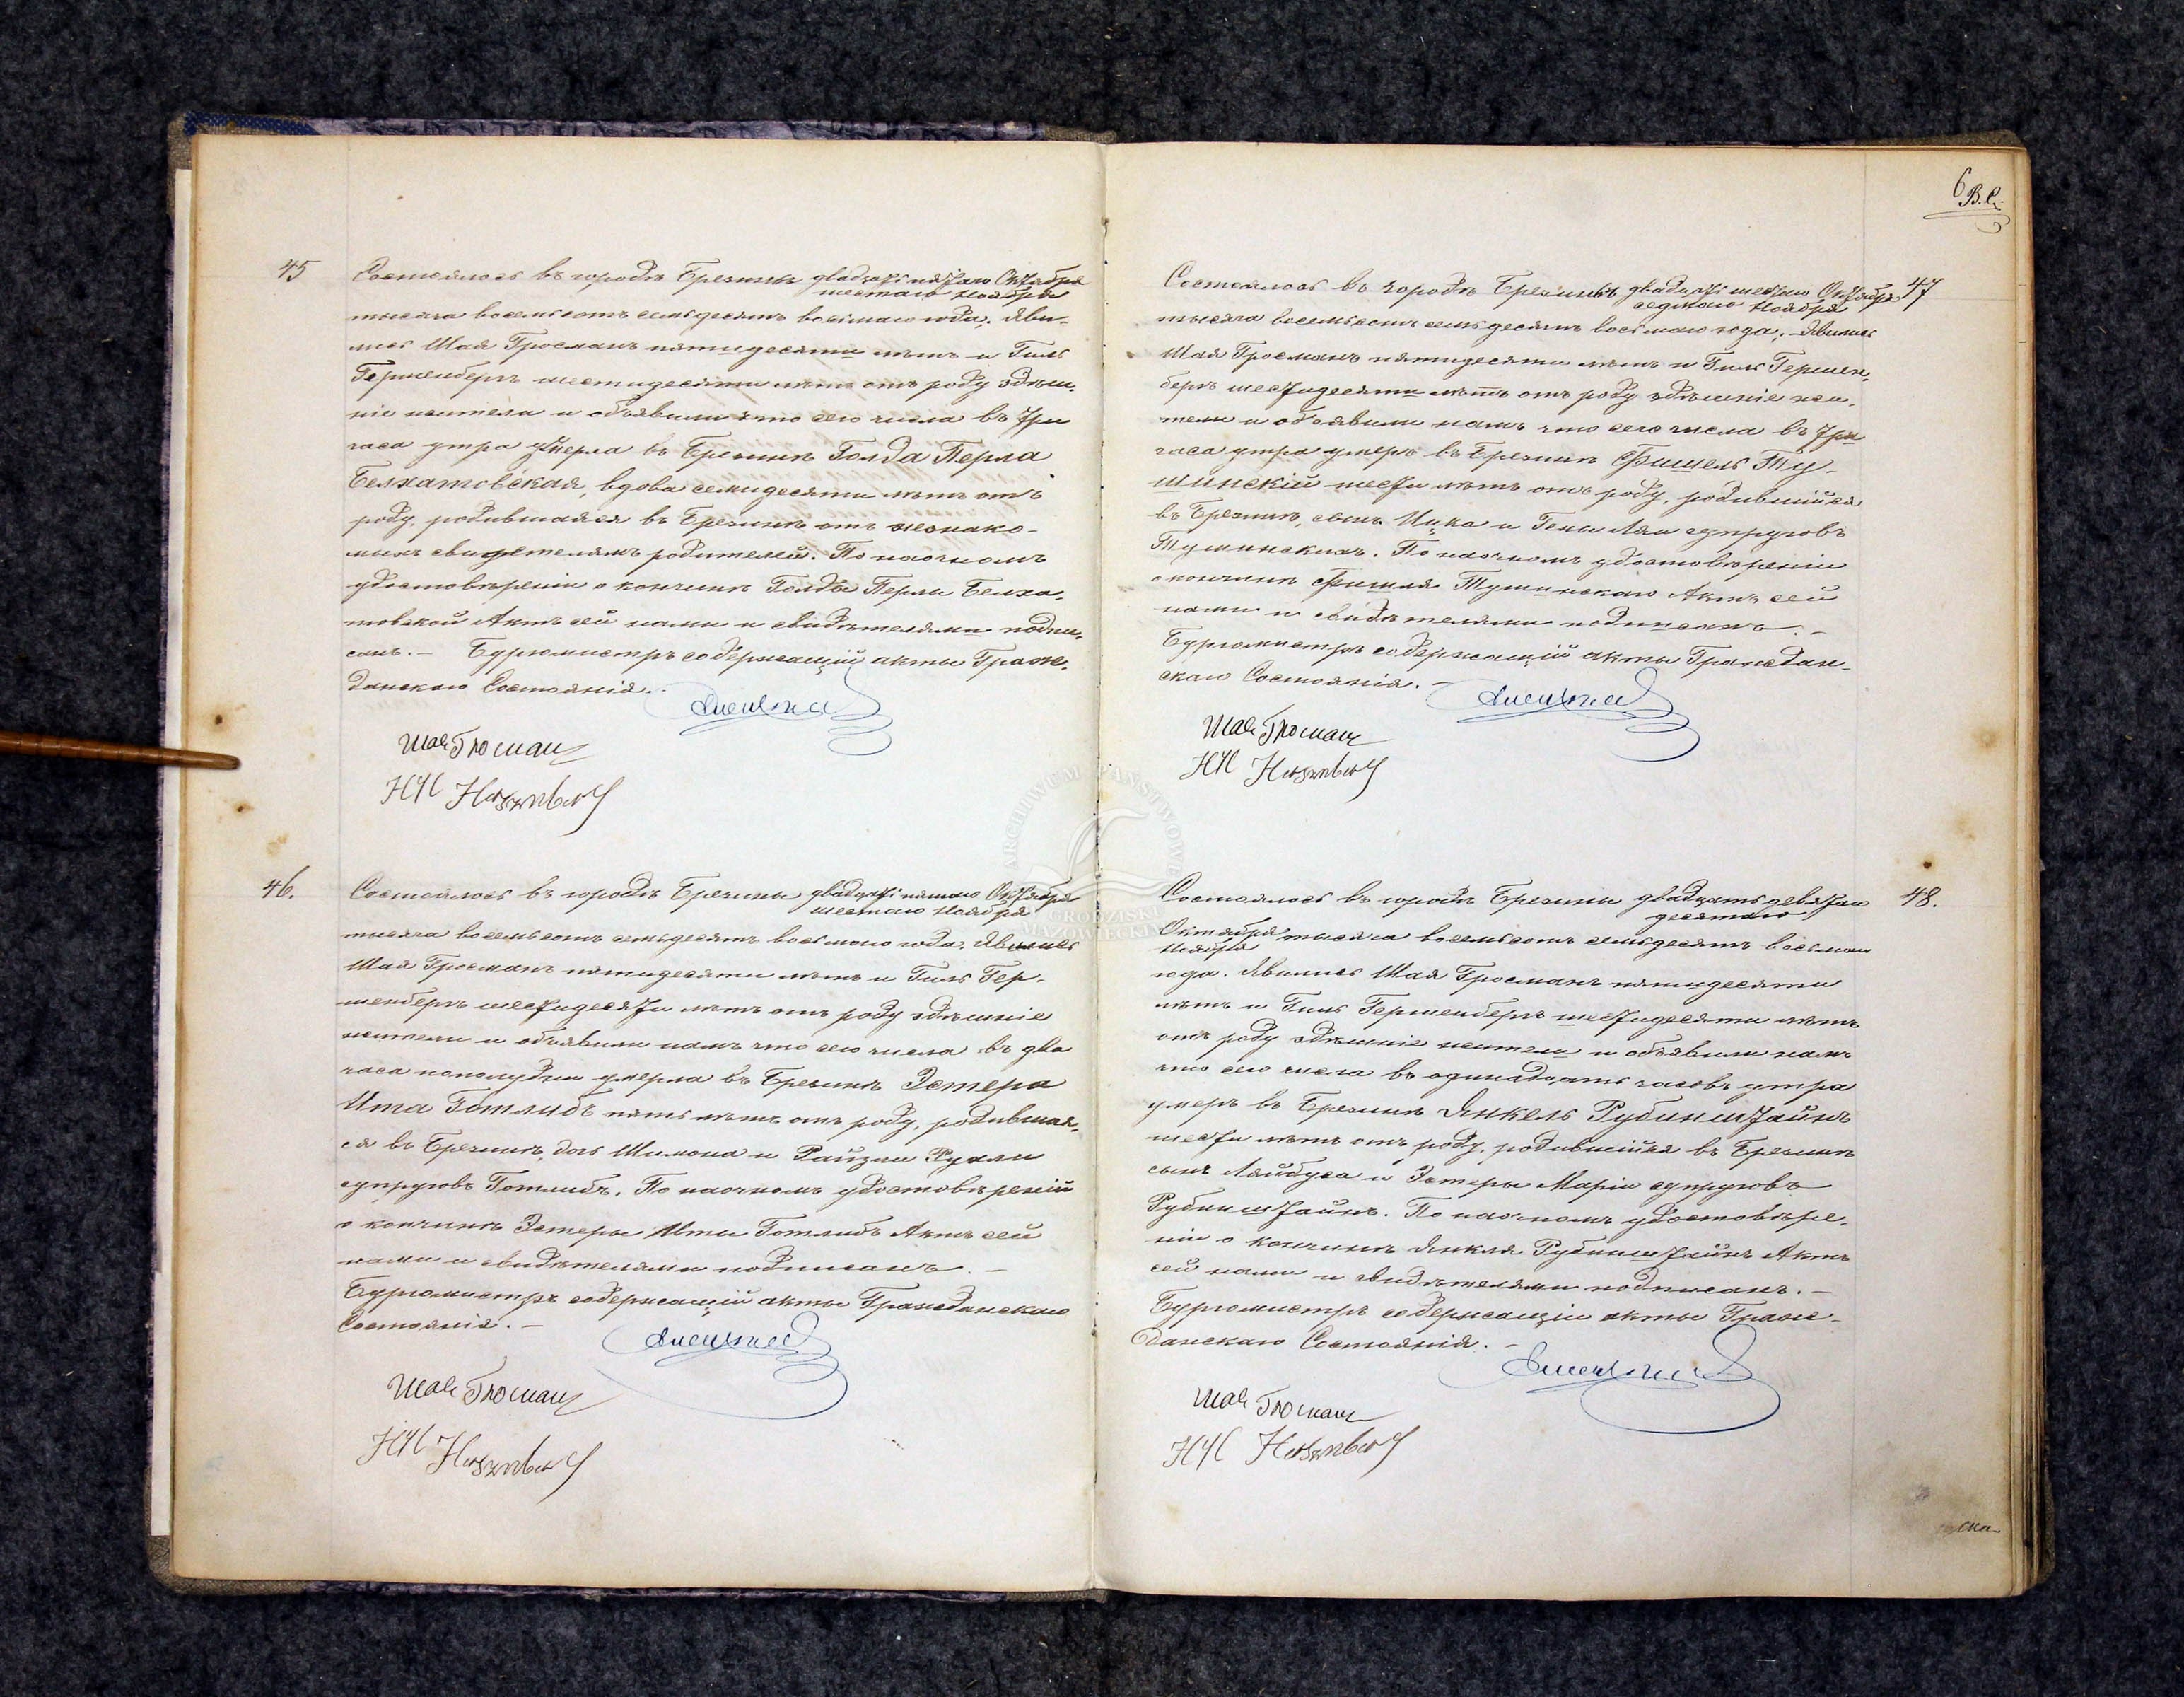 45
Состоялось въ городѣ Брезины двадцать пятаго Октября
шестаго Ноября
тысяча восемьсотъ семьдесятъ восьмаго года. Яви-
лись Шая Гросманъ пятидесяти лѣтъ и Гиль
Гершенбергъ шестидесяти лѣтъ отъ роду здѣш-
ніе жители и объявили что сего числа въ три
часа утра умерла въ Брезинѣ Голда Перла
Белхатовская, вдова семидесяти лѣтъ отъ
роду, родившаяся въ Брезинѣ отъ незнако-
мыхъ свидетелямъ родителей. По наочномъ
удостовѣреніи о кончинѣ Голды Перли Белха-
товской Актъ сей нами и свидѣтелями подпи-
санъ. — Бургомистръ содержащій акты Граж-
данскаго Состоянія.
Шая Гросман
Hil Herszenberg
46.
Состоялось въ городѣ Брезины двадцать пятаго Октября
шестаго Ноября
тысяча восемьсотъ семьдесятъ восьмого года. Явились
Шая Гросманъ пятидесяти лѣтъ и Гиль Гер-
шенбергъ шестидесяти лѣтъ отъ роду здѣшніе
жители и объявили намъ что сего числа въ два
часа пополудни умерла въ Брезинѣ Эстера
Ита Готлибъ пять лѣтъ отъ роду, родившая-
ся въ Брезинѣ, дочь Шимона и Райзли Рухли
супруговъ Готлибъ. По наочномъ удостовѣреній
о кончинѣ Эстеры Иты Готлибъ Актъ сей
нами и свидѣтелями подписанъ. —
Бургомистръ содержащій акты Гражданскаго
Состоянія. —
Шая Гросман
Hil Herszenberg
6 В.С.
47
Состоялось въ городѣ Брезинъ двадцать шестаго Октября
седмаго Ноября
тысяча восемьсотъ семьдесятъ восьмаго года. Явились
Шая Гросманъ пятидесяти лѣтъ и Гиль Гершен-
бергъ шестидесяти лѣтъ отъ роду здѣшніе жи-
тели и объявили намъ что сего числа въ три
часа утра умеръ въ Брезинѣ Фишель Ту-
шинскій шести лѣтъ отъ роду, родившійся
въ Брезинѣ, сынъ Ицка и Гены Леи супруговъ
Тушинскихъ. По наочномъ удостовѣреніи
о кончинѣ Фишля Тушинскаго Актъ сей
нами и свидѣтелями подписанъ. —
Бургомистръ содержащій акты Граждан-
скаго Состоянія. —
Шая Гросман
Hil Herszenberg
48.
Состоялось въ городѣ Брезины двадцать девятаго
десятаго
Октября тысяча восемьсотъ семьдесятъ восьмаго
Ноября
года. Явились Шая Гросманъ пятидесяти
лѣтъ и Гиль Гершенбергъ шестидесяти лѣтъ
отъ роду здѣшніе жители и объявили намъ
что сего числа въ одинадцать часовъ утра
умеръ въ Брезинѣ Янкель Рубинштайнъ
шести лѣтъ отъ роду, родившійся въ Брезинѣ
сынъ Ляйбуса и Эстеры Маріи супруговъ
Рубинштайнъ. По наочномъ удостовѣре-
ніи о кончинѣ Янкля Рубинштайнъ Актъ
сей нами и свидѣтелями подписанъ. —
Бургомистръ содержащій акты Граж-
данскаго Состоянія. —
Шая Гросман
Hil Herszenberg
ARCHIWUM PAŃSTWOWE
GRODZISK
MAZOWIECKI